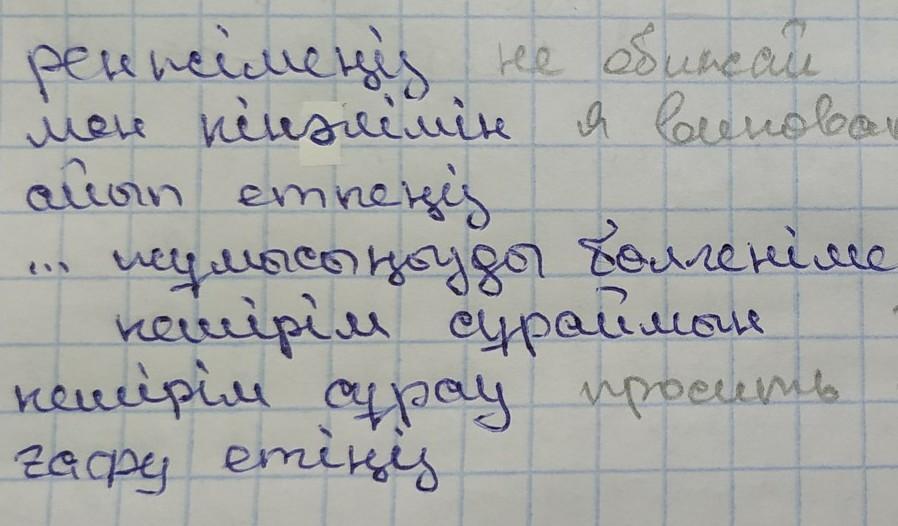 ренжімеңіз не обижай
мен кінәлімін я виноват
айып етпеңіз
... жұмысыңызды бөлгеніме
кешірім сұраймын
кешірім сұрау просить
ғафу етіңіз